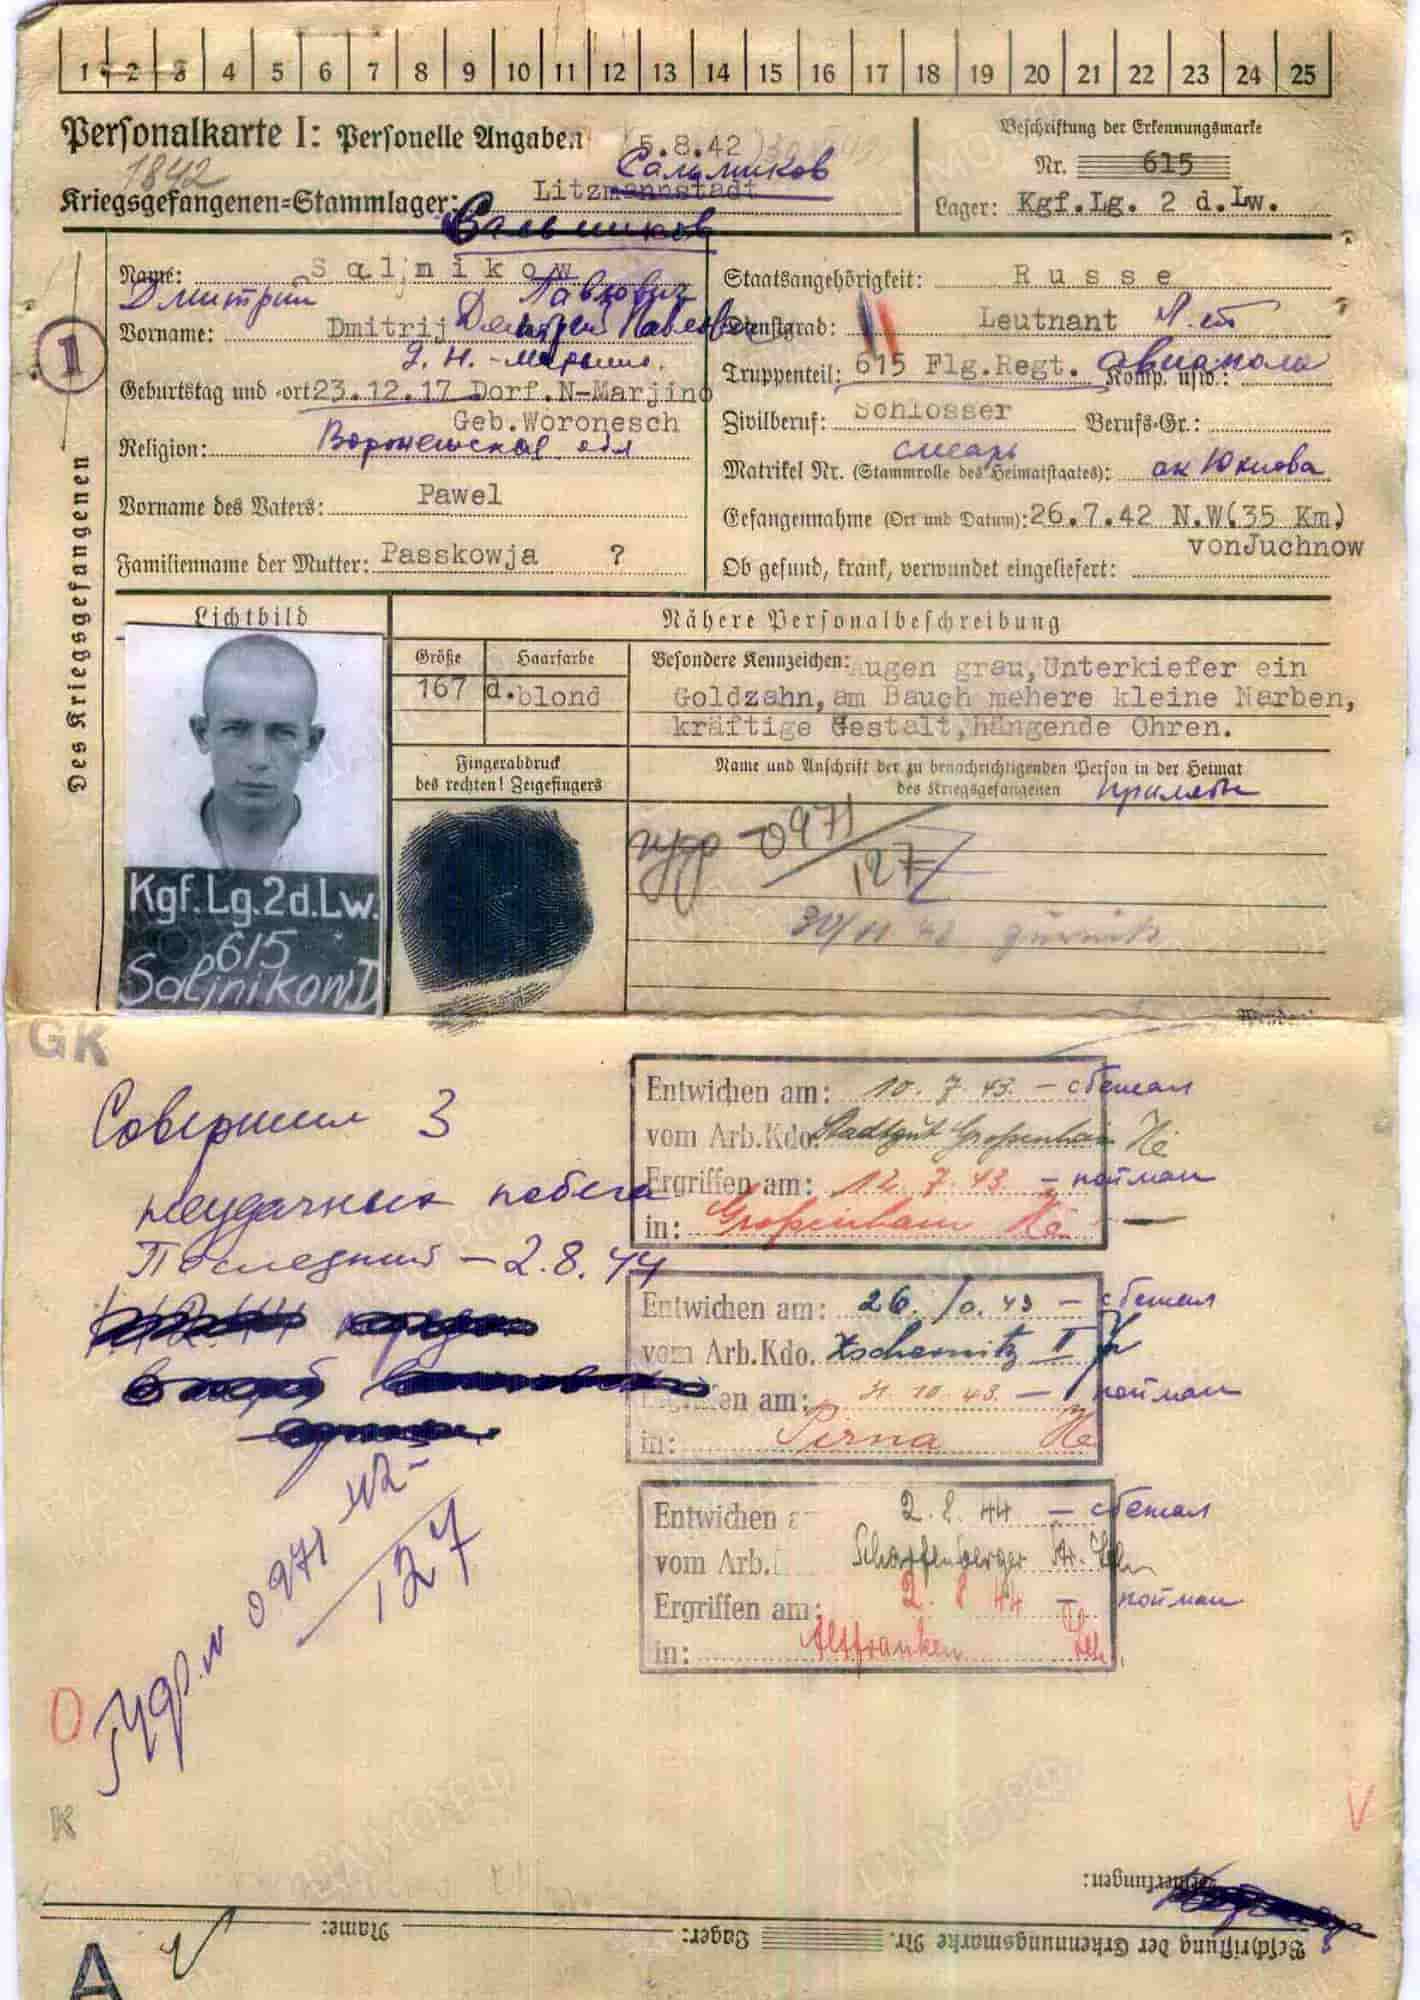 1 2 3 4 5 6 7 8 9 10 11 12 13 14 15 16 17 18 19 20 21 22 23 24 25
Personalkarte I: Personelle Angaben
5.8.42
Beschriftung der Erkennungsmarke
1842
Сальников
Nr. 615
Kriegsgefangenen-Stammlager: Litzmannstadt
Lager: Kgf.Lg. 2 d.Lw.
Сальников
Des Kriegsgefangenen
1
Name: Saljnikow
Дмитрий Павлович
Vorname: Dmitrij Дмитрий Павлович
Д. Н.-Марьино.
Geburtstag und -ort 23.12.17 Dorf.N-Marjino
Geb.Woronesch
Religion: Воронежская обл
Vorname des Vaters: Pawel
Familienname der Mutter: Passkowja ?
Staatsangehörigkeit: Russe
Dienstgrad: Leutnant
Truppenteil: 615 Flg.Regt. Komp. usw.: авиаполк
Zivilberuf: Schlosser Berufs-Gr.:
слесарь
Matrikel Nr. (Stammrolle des Heimatstaates): ок Юхнова
Gefangennahme (Ort und Datum): 26.7.42 N.W(35 Km)
vonJuchnow
Ob gesund, krank, verwundet eingeliefert:
Lichtbild
Nähere Personalbeschreibung
Größe Haarfarbe
167 d.blond
Besondere Kennzeichen: Augen grau,Unterkiefer ein
Goldzahn,am Bauch mehere kleine Narben,
kräftige Gestalt,hängende Ohren.
Kgf.Lg.2d.Lw.
615
Saljnikow D
Fingerabdruck
des rechten! Zeigefingers
Name und Anschrift der zu benachrichtigenden Person in der Heimat
des Kriegsgefangenen
0971
127
Wenden!
GK
Совершил 3
неудачных побега
Последний – 2.8.44
0971
127
Entwichen am: 10.7.43. – сбежал
vom Arb.Kdo. Stadtgut Großenhain
Ergriffen am: 12.7.43 – пойман
in: Großenhain
Entwichen am: 26.10.43 – сбежал
vom Arb.Kdo. Zschernitz II
Ergriffen am: 31.10.43 – пойман
in: Pirna
Entwichen a 2.8.44 – сбежал
vom Arb.
Ergriffen am: 2.8 44 – пойман
in: Altfranken
O
K
V
Bemerkungen:
Beschriftung der Erkennungsmarke Nr. Lager: Name:
A